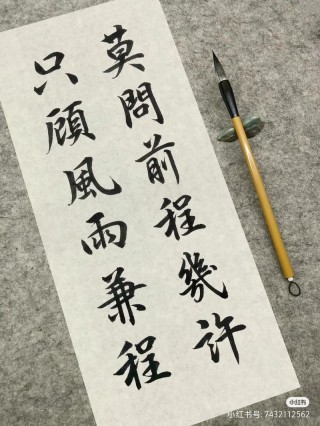 莫問前程幾許
只顧風雨兼程
小红书
小红书号: 7432112562